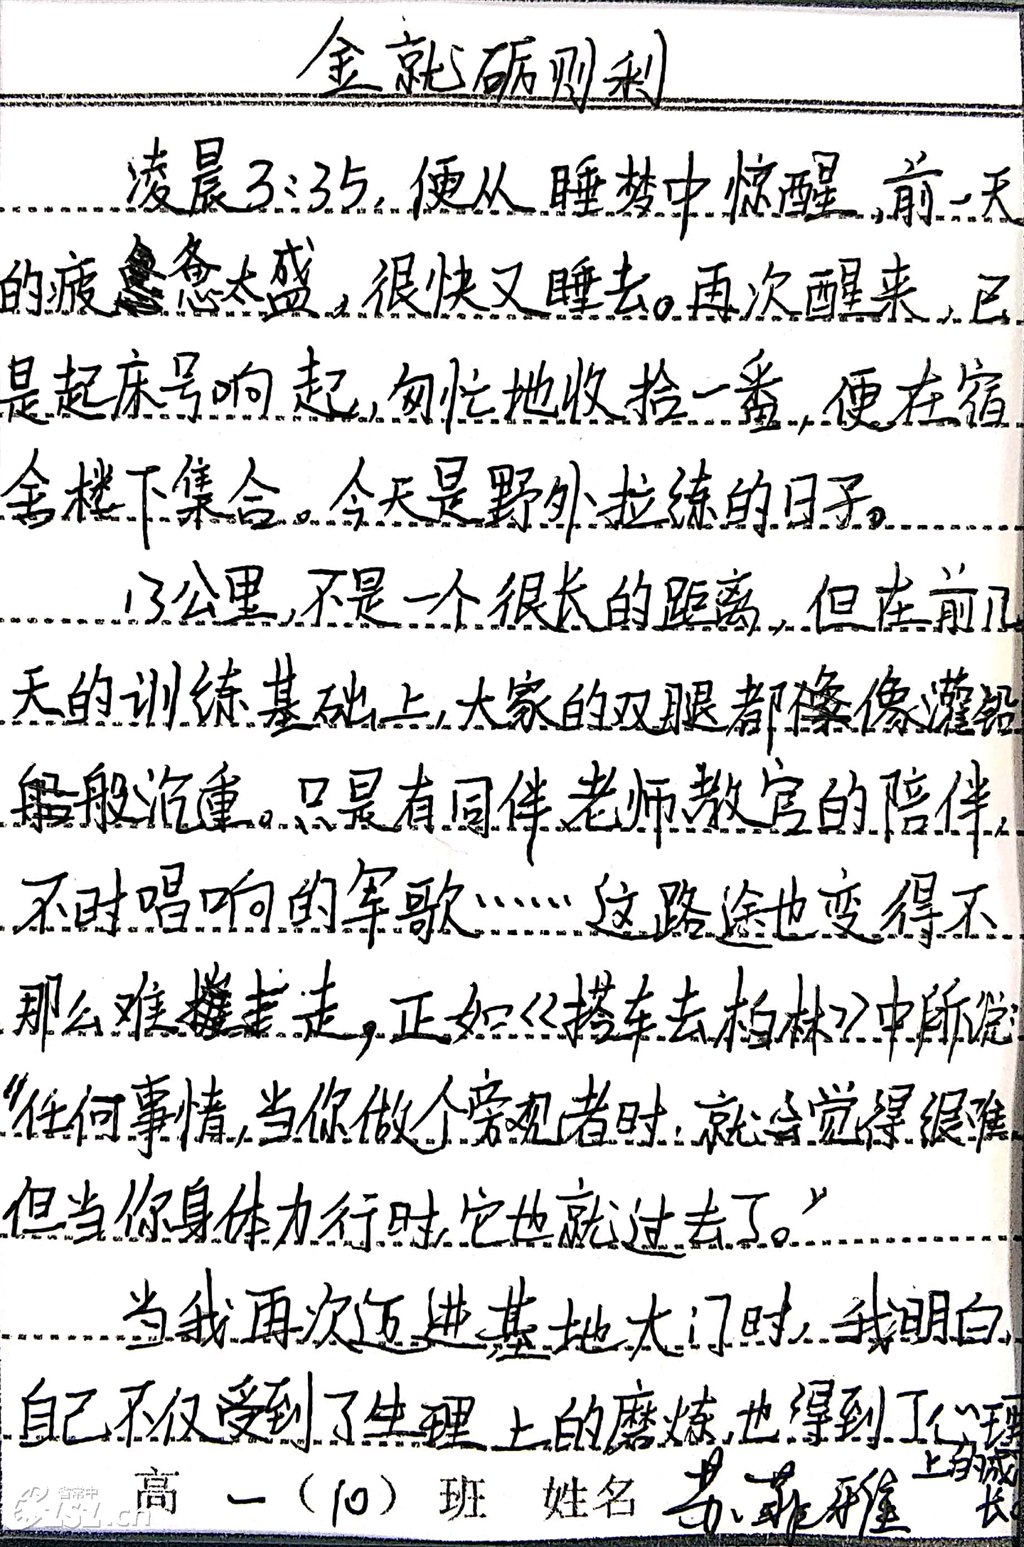 金就砺则利
凌晨3:35,便从睡梦中惊醒,前一天
的疲惫太盛,很快又睡去。再次醒来,已
是起床号响起,匆忙地收拾一番,便在宿
舍楼下集合。今天是野外拉练的日子。
13公里,不是一个很长的距离,但在前几
天的训练基础上,大家的双腿都像灌铅
般沉重。只是有同伴老师教官的陪伴,
不时唱响的军歌……这路途也变得不
那么难走,正如《搭车去柏林》中所说:
"任何事情,当你做个旁观者时,就会觉得很难
但当你身体力行时,它也就过去了。"
当我再次迈进基地大门时,我明白,
自己不仅受到了生理上的磨炼,也得到了心理
上的成
长。
高一(10)班 姓名 苏菲雅
省常中